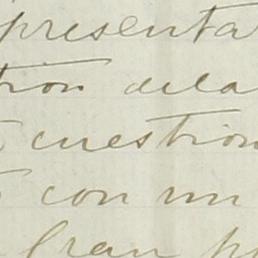 presenta
tion dela
cuestion
con un
gran p